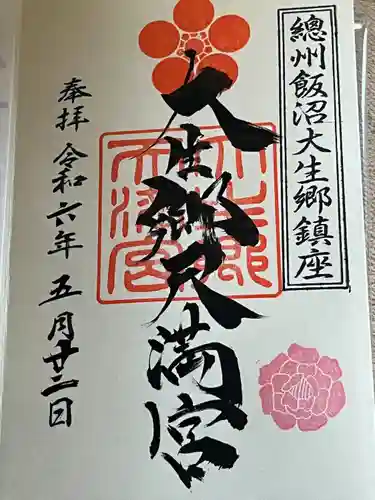 總州飯沼大生郷鎮座
大生郷天満宮
奉拝 令和六年五月廿二日